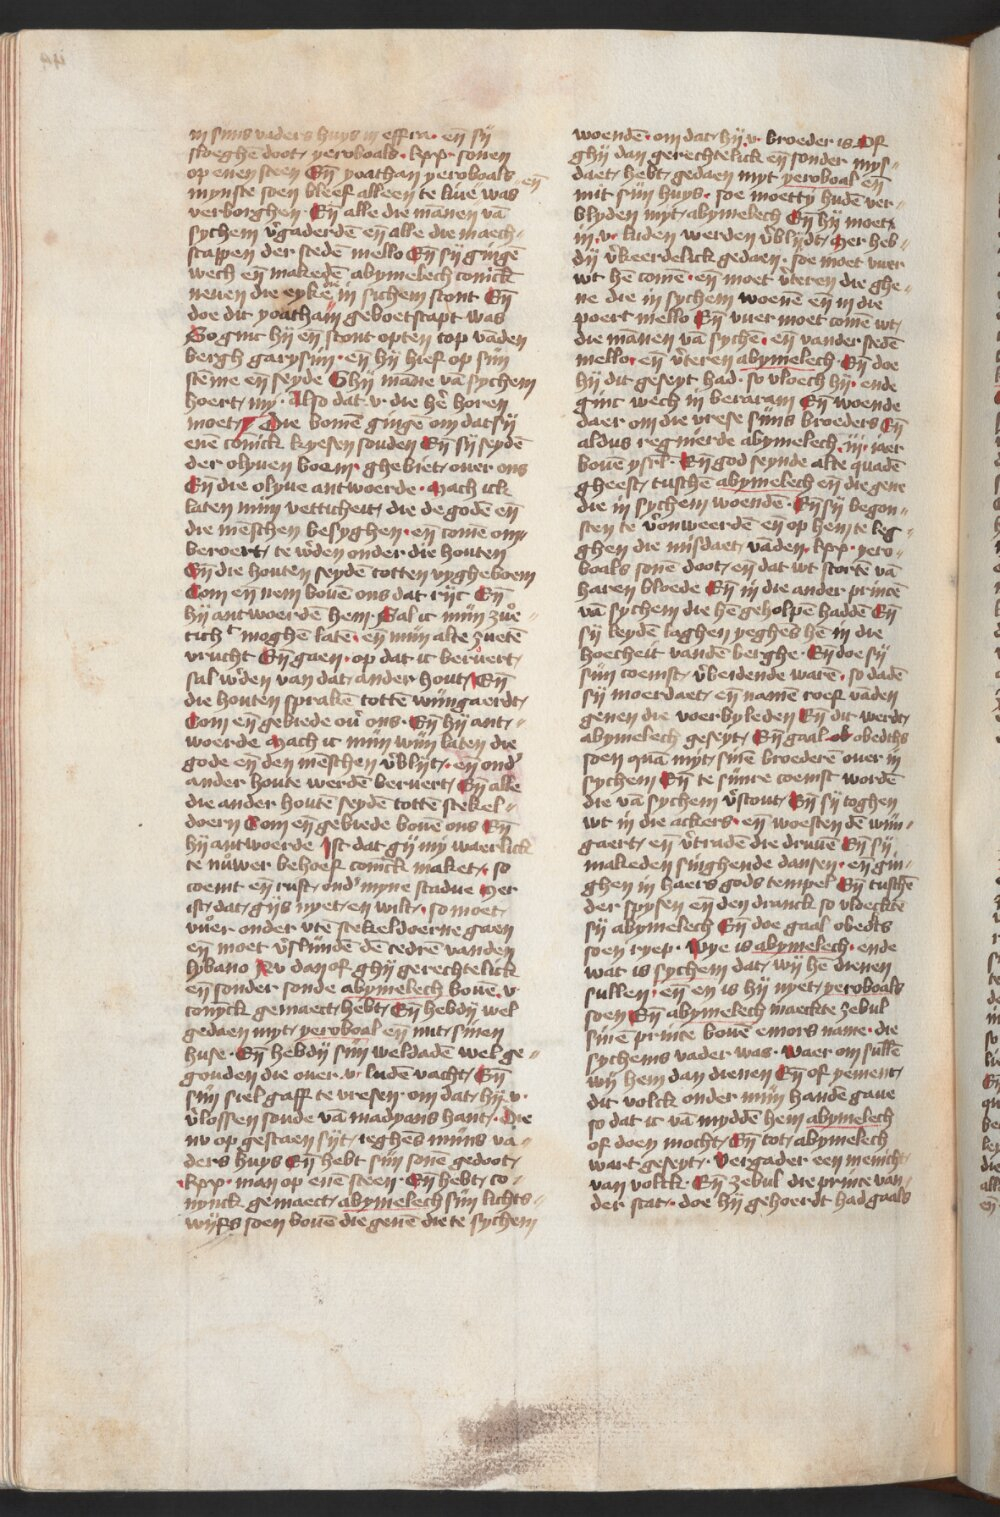 in sijns vaders huys in effra · en̄ sij
sloeghē doot yeroboals · lxx · sonen
op enen steen En̄ yoathan yeroboals
mynste soen bleef alleen te liue was en̄
verborghen · En̄ alle die mānen vā
sychem v̓gaderdē en̄ alle die maech-
scappen der stedē mello En̄ sij gingē
wech en̄ makedē abymelech conick
neuen die eykē in sichem stont En̄
doe dit yoatham geboetscapt was
So ginc hij en̄ stont opten top vāden
bergh garysim · en̄ hij hief op sijn
stēme en̄ seyde Ghij mānē vā sychem
hoert my · Also dat v · die hē horen
moet Die bomē gingē om dat sij
enē conick kyesen souden En̄ sij seydē
der olyuen boem · ghebiet ouer ons
En̄ die olyue antwoerde · Mach ick
laten mijn vetticheit die de godē en̄
die mēschen besyghen · en̄ comē om
beroert te w̓den onder die houten
En̄ die houten seydē totten vygheboem
Com en̄ nem bouē ons dat rijc En̄
hij antwoerdē hem · Sal ic mijn zue-
tich̓t moghē latē · en̄ mijn alte zuetē
vrucht En̄ gaen · op dat ic beruert
sal w̓den van dat ander hout En̄
die houten sprakē tottē wijngaerdt
Com en̄ gebiede ou̓ ons · En̄ hij ant-
woerde Mach ic mijn wijn laten die
gode en̄ den mēschen v̓blijt · en̄ ond̓
ander houte werdē beruert En̄ alle
die ander houtē seydē tottē stekel-
doern Com en̄ gebiede bouē ons En̄
hij antwoerde Ist dat gij mij waerlick
te uwer behoef conick maket · so
coemt en̄ rust ond̓ myne scadue Mer
ist dat gijs nyet en wilt · so moet
vuer onder vtē stekeldoerne gaen
en̄ moet v̓slijndē dē cedrē vanden
lybano Nv dan of ghij gerechtelick
en̄ sonder sonde abymelech bouē · v
conyck gemaect hebt En̄ hebdij wel
gedaen myt yeroboal en̄ mit sinen
huse · En̄ hebdij sijn weldadē wel ge-
gouden die ouer · v · ludē vacht En̄
sijn siel gaff te vresen · om dat hij · v ·
v̓lossen soude vā madyans hant · Die
nv op gestaen sijt ieghēs mijns va-
ders huys En̄ hebt sijn sonē gedoot
· lxx · man op enē steen · En̄ hebt co-
nynck gemaect abymelech sijn lichts-
wijfs soen bouē die genē die te sychem
woendē · om dat hij · v · broeder is Of
ghij dan gerechtelick en̄ sonder mys-
daet hebt gedaen myt yeroboal en̄
mit sijn huys · soe moetty hudē ver-
blyden myt abymelech En̄ hij moet
in · v · luden werden v̓blijdt Mer heb-
dij v̓keerdelick gedaen · soe moet vuer
wt hē comē · en̄ moet v̓teren die ghe-
ne die in sychem woenē en̄ in die
poert mello En̄ vuer moet comē wt
die mānen vā sychē · en̄ vander stedē
mello · en̄ v̓teren abymelech · En̄ doe
hij dit geseyt had · so vloech hij · ende
ginc wech in beraram En̄ woende
daer om die vrese sijns broeders En̄
aldus regnierde abymelech · iij · iaer
bouē ysrl̄ · En̄ god seynde alte quadē
gheest tuschē abymelech en̄ die gene
die in sychem woendē · En̄ sij begon-
sten te v̓onweerdē en̄ op hem te leg-
ghen die misdaet vāden · lxx · yero-
boals sonē doot en̄ dat wt stortē vā
haren bloede En̄ in die ander princē
vā sychem die hē geholpē haddē En̄
sij leydē laghen yeghēs hē in die
hoecheit vandē berghe · En̄ doe sij
sijn coemst v̓beidende warē · so dadē
sij moerdaet en̄ namē roef vāden
genen die voerbyleden En̄ dit werdt
abymelech geseyt En̄ gaal ob obedths
soen quā myt sinē broederē ouer in
sychem En̄ te sijnre coemst wordē
die vā sychem v̓stout En̄ sij toghen
wt in die ackers · en̄ woesten dē wijn-
gaert en̄ v̓tradē die druuē En̄ sij
makeden singhende dansen · en̄ gin-
ghen in haers gods tempel En̄ tuschē
der spysen en̄ den dranck so vloecktē
sij abymelech En̄ doe gaal obedts
soen ryep · Wye is abymelech · ende
wat is sychem dat wij hē dienen
sullen · en̄ en is hij nyet yeroboals
soen En̄ abymelech maeckte zebul
sinē prince bouē emors name · die
sychems vader was · Waer om sullē
wij hem dan dienen En̄ of yement
dit volck onder mijn handē gaue
so dat ic vā myddē hem abymelech
of doen mocht En̄ tot abymelech
wart geseyt · Vergader een menicht
van volck · En̄ zebul die prince van-
der stat · doe hij gehoerdt had gaals